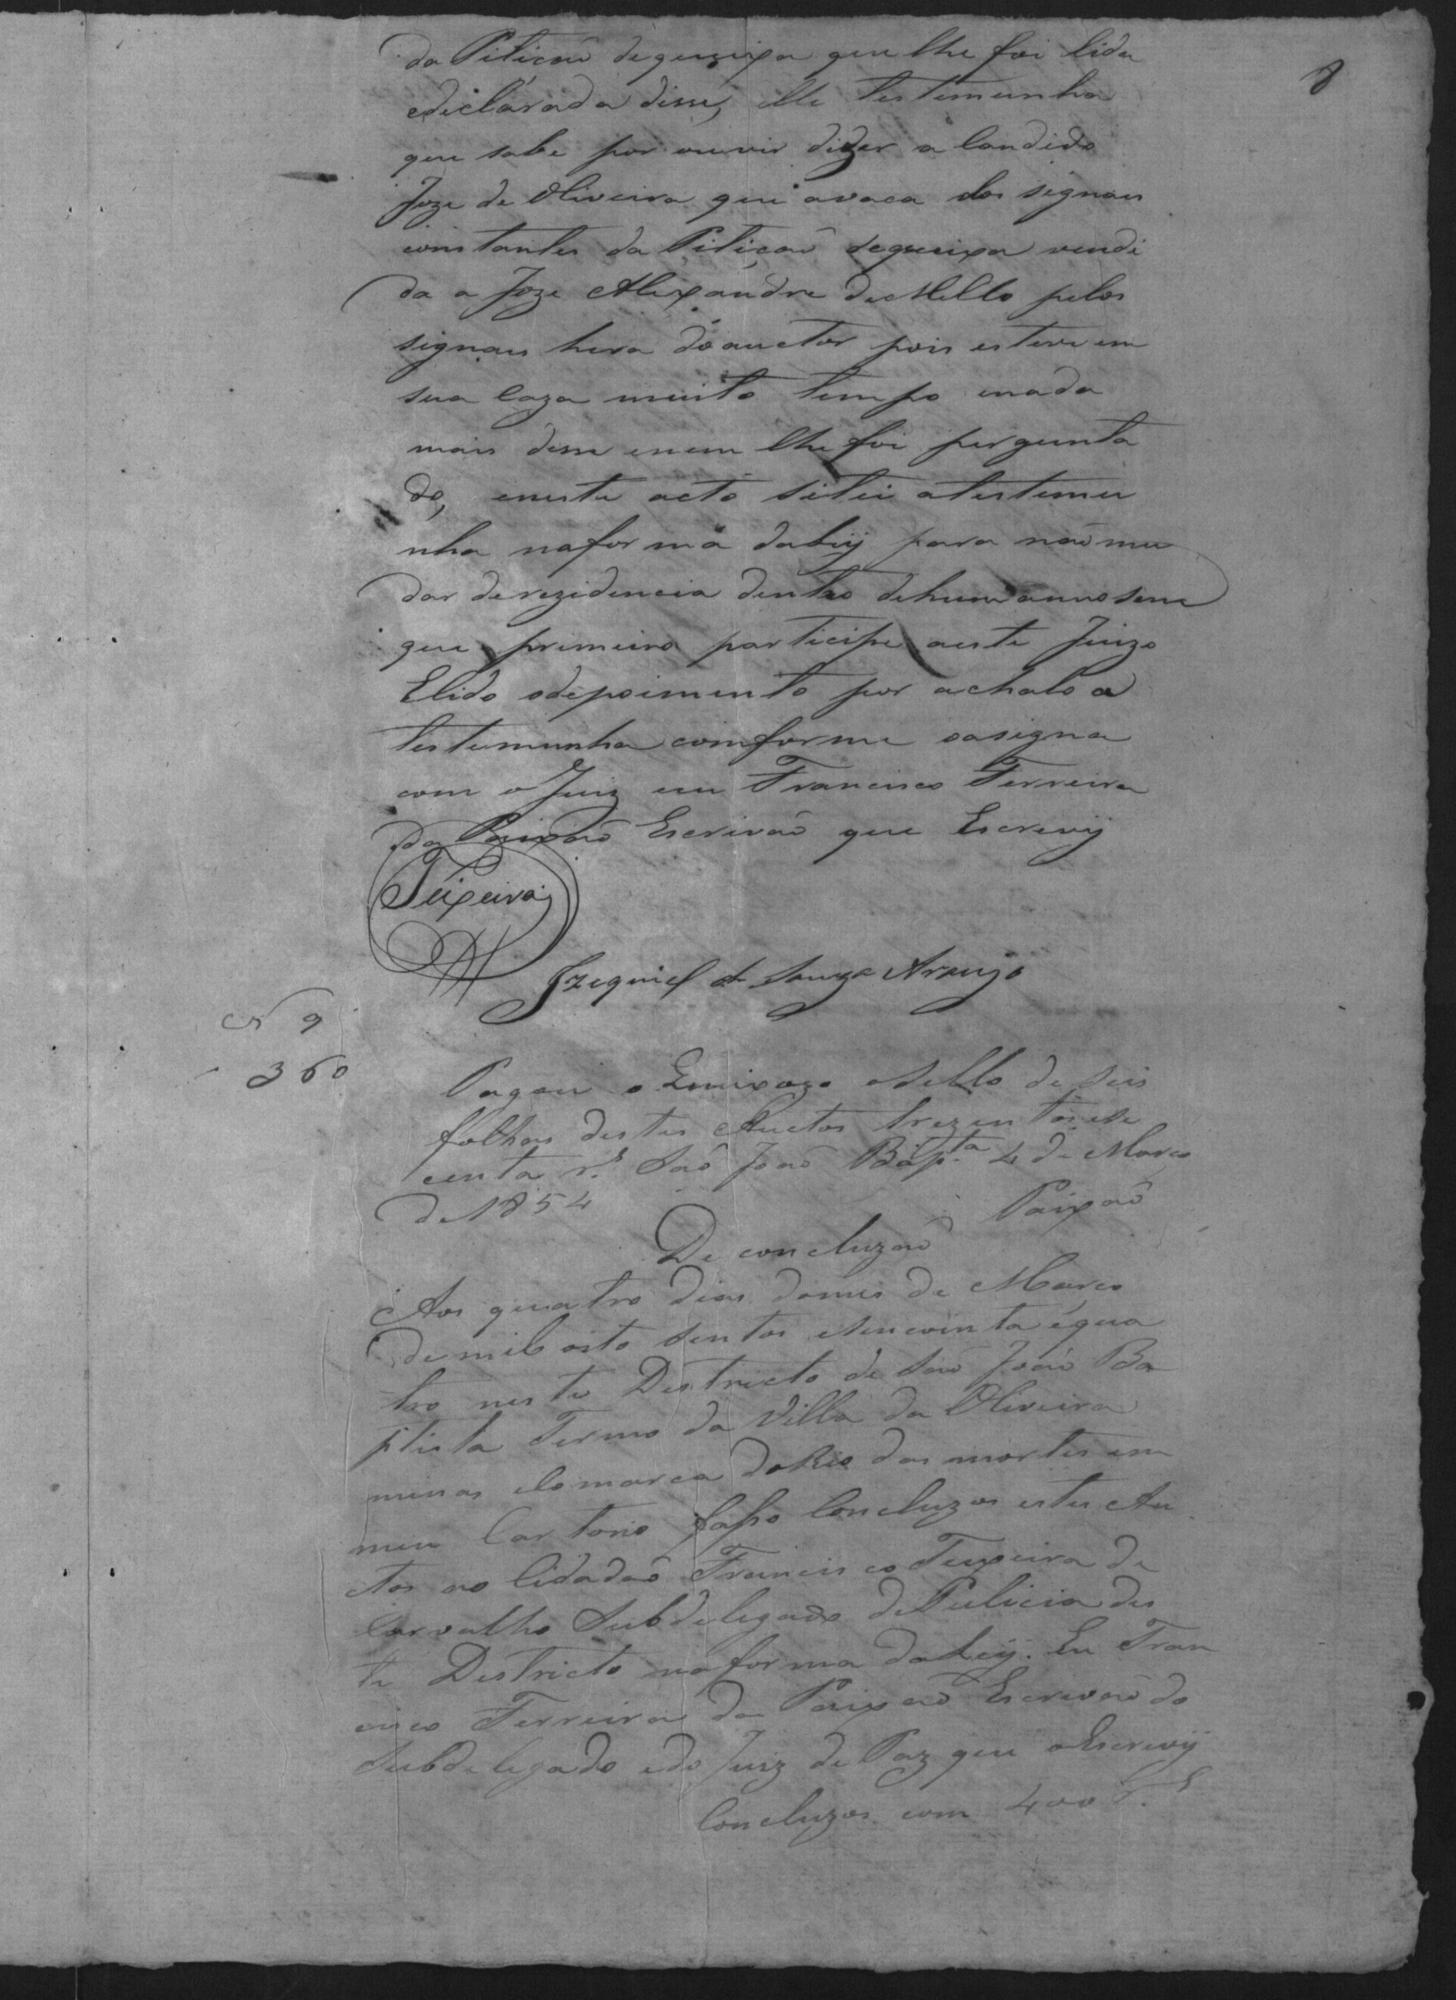 8
da Pitição dequeixa que lhe foi lida
edeclarada disse, elle testemunha
que sabe por ouvir dizer a Candido
Joze de Oliveira que avaca dos signais
constantes da Pitição dequeixa vendi
da a Joze Alexandre de Mello pelos
signais hera do auctor pois esteve em
sua Caza muito tempo enada
mais disse enem lhe foi pergunta
do, eneste acto sitei atestemu
nha naforma daLey para não mu
dar derezidencia dentro dehum anno sem
que primeiro participe aeste Juizo
Elido odepoimento por achalo a
testemunha comforme oasigna
com o Juiz eu Francisco Ferreira
da Paixão Escrivão que Escrevy
Teixeira
Izequiel de Souza Araujo
Nº 9
360
Pagou o osello de seis
folhas destes Auctos trezentos ese
centa r.s São João Bap.ta 4 de Março
de 1854
Paixão
De concluzão
Aos quatro dias domes de Março
de mil oito sentos esincoenta équa
tro neste Destricto de São João Ba
ptista Termo da Villa da Oliveira
minas Comarca doRio das mortes em
meu Cartorio fasso Concluzos estes Au
ctos ao Cidadão Francisco Teixeira de
Carvalho Subdelegado de Pulicia des
te Destricto naforma daLey. Eu Fran
cisco Ferreira da Paixão Escrivão do
Subdelegado edo Juiz de Paz que oEscrevy
Concluzos com 400 r.s